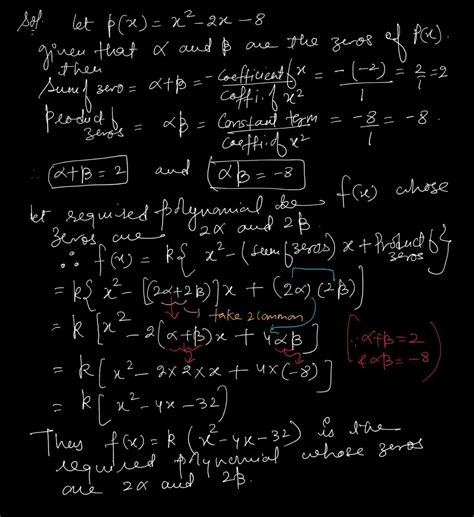 Sol. let p(x) = x² - 2x - 8
given that α and β are the zeros of p(x).
then
Sum of zero = α+β = - coefficient of x / coeffi. of x² = -(-2)/1 = 2/1 = 2
Product of zeros = αβ = Constant term / coeffi of x² = -8/1 = -8.
∴ α+β = 2 and αβ = -8
let required polynomial be f(x) whose
zeros are 2α and 2β.
∴ f(x) = k{ x² - (sum of zeros) x + Product of zeros }
= k{ x² - [(2α+2β)] x + (2α)(2β)}
take 2 common
= k [ x² - 2(α+β)x + 4αβ ]
(∵ α+β = 2
& αβ = -8)
= k [ x² - 2×2×x + 4×(-8) ]
= k [ x² - 4x - 32)
Thus f(x) = k (x² - 4x - 32) is the
required polynomial whose zeros
are 2α and 2β.